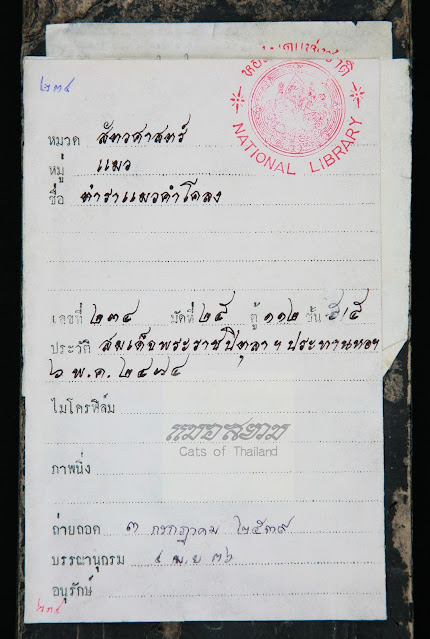 ๒๓๔
หอสมุดแห่งชาติ
NATIONAL LIBRARY
หมวด สัตวศาสตร์
หมู่ แมว
ชื่อ ตำราแมวคำโคลง
เลขที่ ๒๓๔ มัดที่ ๒๕ ตู้ ๑๑๒ ชั้น ๕/๕
ประวัติ สมเด็จพระราชปิตุลาฯ ประทานหอฯ
๖ พ.ค. ๒๔๗๔
ไมโครฟิล์ม
แมวสยาม
Cats of Thailand
ภาพนิ่ง
ถ่ายถอด ๓ กรกฎาคม ๒๕๓๙
บรรณานุกรม เม.ย ๓๖
อนุรักษ์
๒๓๔